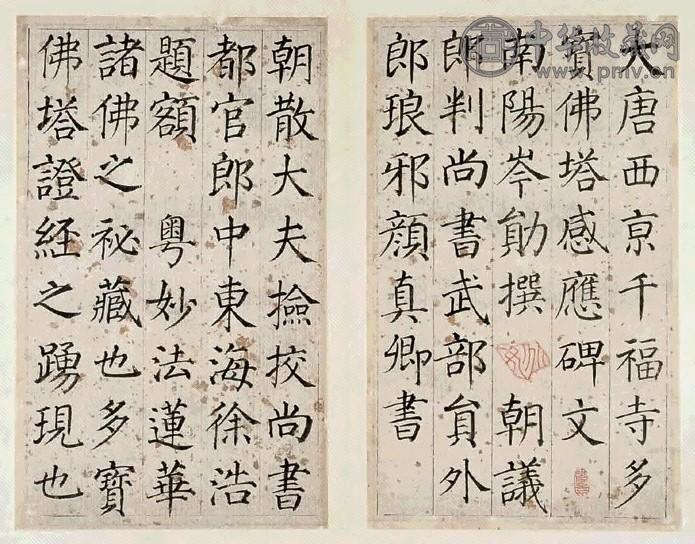 大唐西京千福寺多
寶佛塔感應碑文
南陽岑勛撰 朝議
郎判尚書武部貟外
郎琅邪顔真卿書
朝散大夫撿挍尚書
都官郎中東海徐浩
題額 粤妙法蓮華
諸佛之祕藏也多寶
佛塔證經之踴現也
中华收藏网
www.pmlv.cn